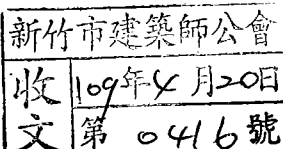 新竹市建築師公會
收文
109年4月20日
第0416號